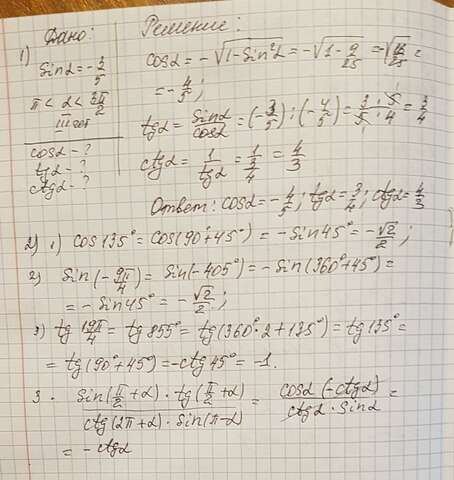 Дано: Решение:
1) sin α = -3/5
π < α < 3π/2
III чет
cos α - ?
tg α - ?
ctg α - ?
cos α = -√(1-sin²α) = -√(1-9/25) = -√(16/25) =
= -4/5;
tg α = sin α/cos α = (-3/5) : (-4/5) = 3·5/5·4 = 3/4
ctg α = 1/tg α = 1/(3/4) = 4/3
Ответ: cos α = -4/5; tg α = 3/4; ctg α = 4/3
2) 1) cos 135° = cos(90°+45°) = -sin 45° = -√2/2;
2) sin(-9π/4) = sin(-405°) = -sin(360°+45°) =
= -sin 45° = -√2/2;
3) tg 19π/4 = tg 855° = tg(360°·2+135°) = tg 135° =
= tg(90°+45°) = -ctg 45° = -1.
3. sin(π/2+α)·tg(π/2+α) / ctg(2π+α)·sin(π-α) = cos α(-ctg α) / ctg α·sin α =
= -ctg α